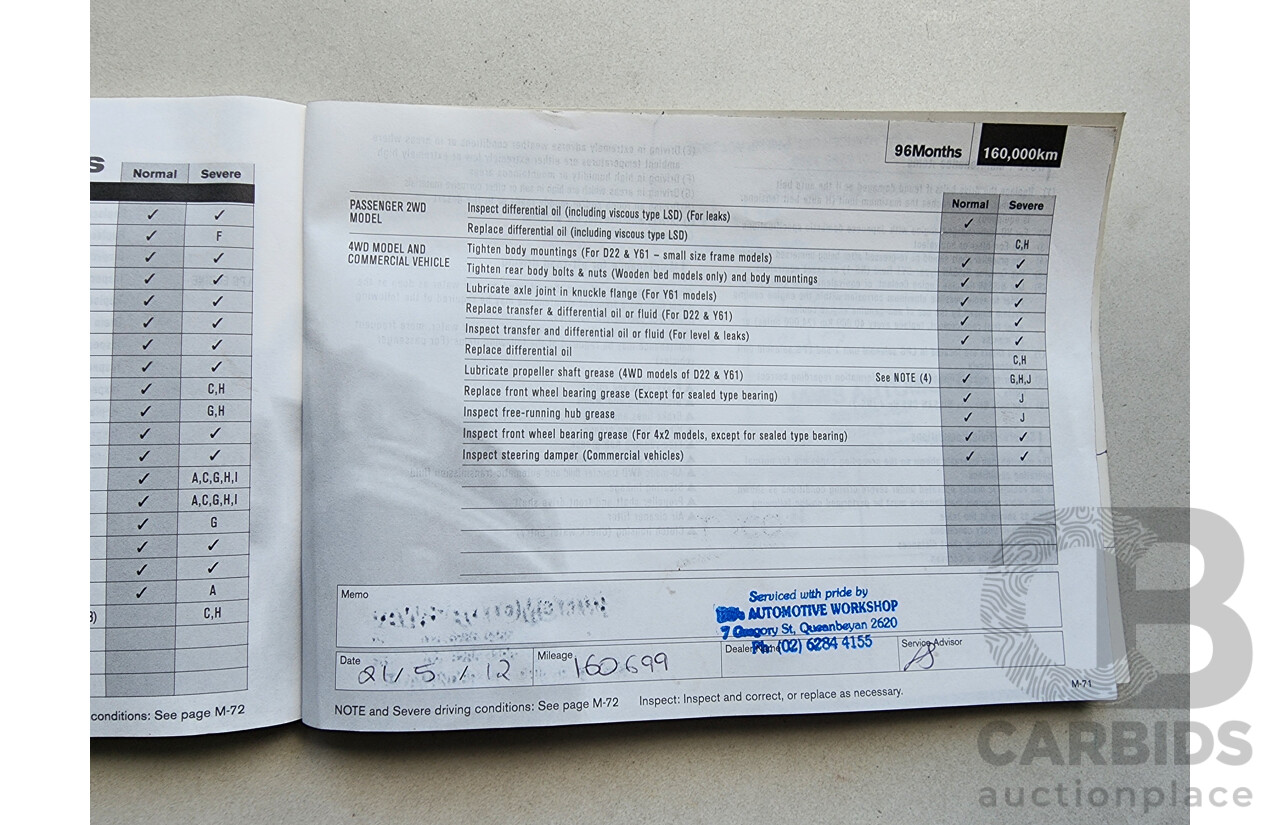 s
Normal Severe
✓ ✓
✓ F
✓ ✓
✓ ✓
✓ ✓
✓ ✓
✓ ✓
✓ ✓
✓ C,H
✓ G,H
✓ ✓
✓ ✓
✓ A,C,G,H,I
✓ A,C,G,H,I
✓ G
✓ ✓
✓ ✓
✓ A
3) C,H
conditions: See page M-72
96Months 160,000km
Normal Severe
PASSENGER 2WD MODEL
Inspect differential oil (including viscous type LSD) (For leaks) ✓
Replace differential oil (including viscous type LSD) C,H
4WD MODEL AND COMMERCIAL VEHICLE
Tighten body mountings (For D22 & Y61 – small size frame models) ✓ ✓
Tighten rear body bolts & nuts (Wooden bed models only) and body mountings ✓ ✓
Lubricate axle joint in knuckle flange (For Y61 models) ✓ ✓
Replace transfer & differential oil or fluid (For D22 & Y61) ✓ ✓
Inspect transfer and differential oil or fluid (For level & leaks) ✓ ✓
Replace differential oil C,H
Lubricate propeller shaft grease (4WD models of D22 & Y61) See NOTE (4) ✓ G,H,J
Replace front wheel bearing grease (Except for sealed type bearing) ✓ J
Inspect free-running hub grease ✓ J
Inspect front wheel bearing grease (For 4x2 models, except for sealed type bearing) ✓ ✓
Inspect steering damper (Commercial vehicles) ✓ ✓
Memo
Serviced with pride by
AUTOMOTIVE WORKSHOP
7 Gregory St, Queanbeyan 2620
Ph: (02) 6284 4155
Date 21/5/12
Mileage 160699
Dealer Name
Service Advisor
NOTE and Severe driving conditions: See page M-72 Inspect: Inspect and correct, or replace as necessary.
M-71
CB
CARBIDS
auctionplace